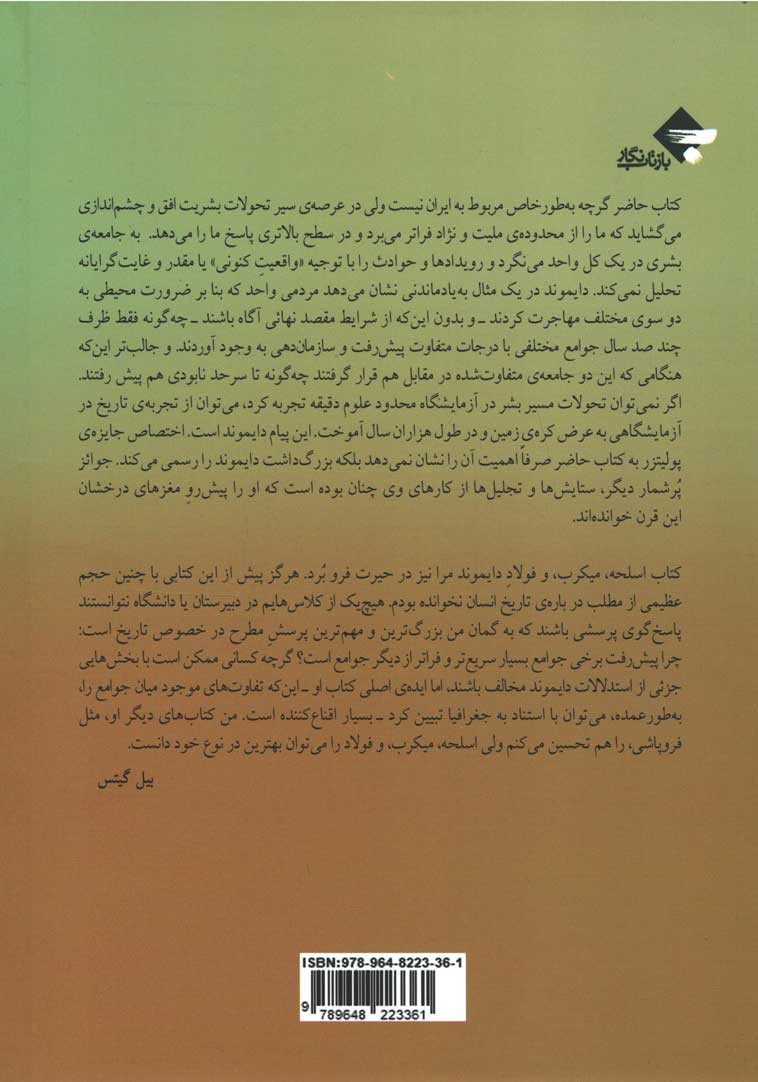 بازتاب‌نگار
کتاب حاضر گرچه به‌طورخاص مربوط به ایران نیست ولی در عرصه‌ی سیر تحولات بشریت افق و چشم‌اندازی
می‌گشاید که ما را از محدوده‌ی ملیت و نژاد فراتر می‌برد و در سطح بالاتری پاسخ ما را می‌دهد. به جامعه‌ی
بشری در یک کل واحد می‌نگرد و رویدادها و حوادث را با توجیه «واقعیتِ کنونی» یا مقدر و غایت‌گرایانه
تحلیل نمی‌کند. دایموند در یک مثال به‌یادماندنی نشان می‌دهد مردمی واحد که بنا بر ضرورت محیطی به
دو سوی مختلف مهاجرت کردند ـ و بدون این‌که از شرایط مقصد نهائی آگاه باشند ـ چه‌گونه فقط ظرف
چند صد سال جوامع مختلفی با درجات متفاوت پیش‌رفت و سازمان‌دهی به وجود آوردند. و جالب‌تر این‌که
هنگامی که این دو جامعه‌ی متفاوت‌شده در مقابل هم قرار گرفتند چه‌گونه تا سرحد نابودی هم پیش رفتند.
اگر نمی‌توان تحولات مسیر بشر در آزمایشگاه محدود علوم دقیقه تجربه کرد، می‌توان از تجربه‌ی تاریخ در
آزمایشگاهی به عرض کره‌ی زمین و در طول هزاران سال آموخت. این پیام دایموند است. اختصاص جایزه‌ی
پولیتزر به کتاب حاضر صرفاً اهمیت آن را نشان نمی‌دهد بلکه بزرگ‌داشت دایموند را رسمی می‌کند. جوائز
پُرشمار دیگر، ستایش‌ها و تجلیل‌ها از کارهای وی چنان بوده است که او را پیش‌روِ مغزهای درخشان
این قرن خوانده‌اند.
کتاب اسلحه، میکرب، و فولادِ دایموند مرا نیز در حیرت فرو بُرد. هرگز پیش از این کتابی با چنین حجم
عظیمی از مطلب در باره‌ی تاریخ انسان نخوانده بودم. هیچ‌یک از کلاس‌هایم در دبیرستان یا دانشگاه نتوانستند
پاسخ‌گوی پرسشی باشند که به گمان من بزرگ‌ترین و مهم‌ترین پرسشِ مطرح در خصوص تاریخ است:
چرا پیش‌رفت برخی جوامع بسیار سریع‌تر و فراتر از دیگر جوامع است؟ گرچه کسانی ممکن است با بخش‌هایی
جزئی از استدلالات دایموند مخالف باشند، اما ایده‌ی اصلی کتاب او ـ این‌که تفاوت‌های موجود میان جوامع را،
به‌طورعمده، می‌توان با استناد به جغرافیا تبیین کرد ـ بسیار اقناع‌کننده است. من کتاب‌های دیگر او، مثل
فروپاشی، را هم تحسین می‌کنم ولی اسلحه، میکرب، و فولاد را می‌توان بهترین در نوع خود دانست.
بیل گیتس
ISBN:978-964-8223-36-1
9 789648 223361